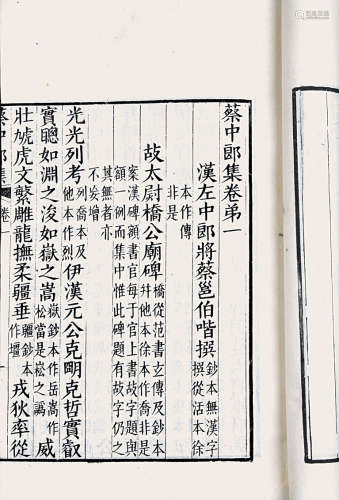 蔡中郎集卷弟一
漢左中郎將蔡邕伯喈撰鈔本無漢字撰從活本徐
本作傳非是
故太尉橋公廟碑橋從范書玄傳及鈔本幷他本徐本作喬非是
案漢碑額書官每于官上書故字題與額一例而集中惟此碑題有故字仍之
其無者亦不妄增
光光列考列喬本及他本作烈伊漢元公克明克哲實叡
實聰如淵之浚如嶽之嵩嶽鈔本作岳嵩作松當是崧之譌威
壯虓虎文繁雕龍撫柔疆垂疆鈔本作壇戎狄率從
蔡中郎集 卷一